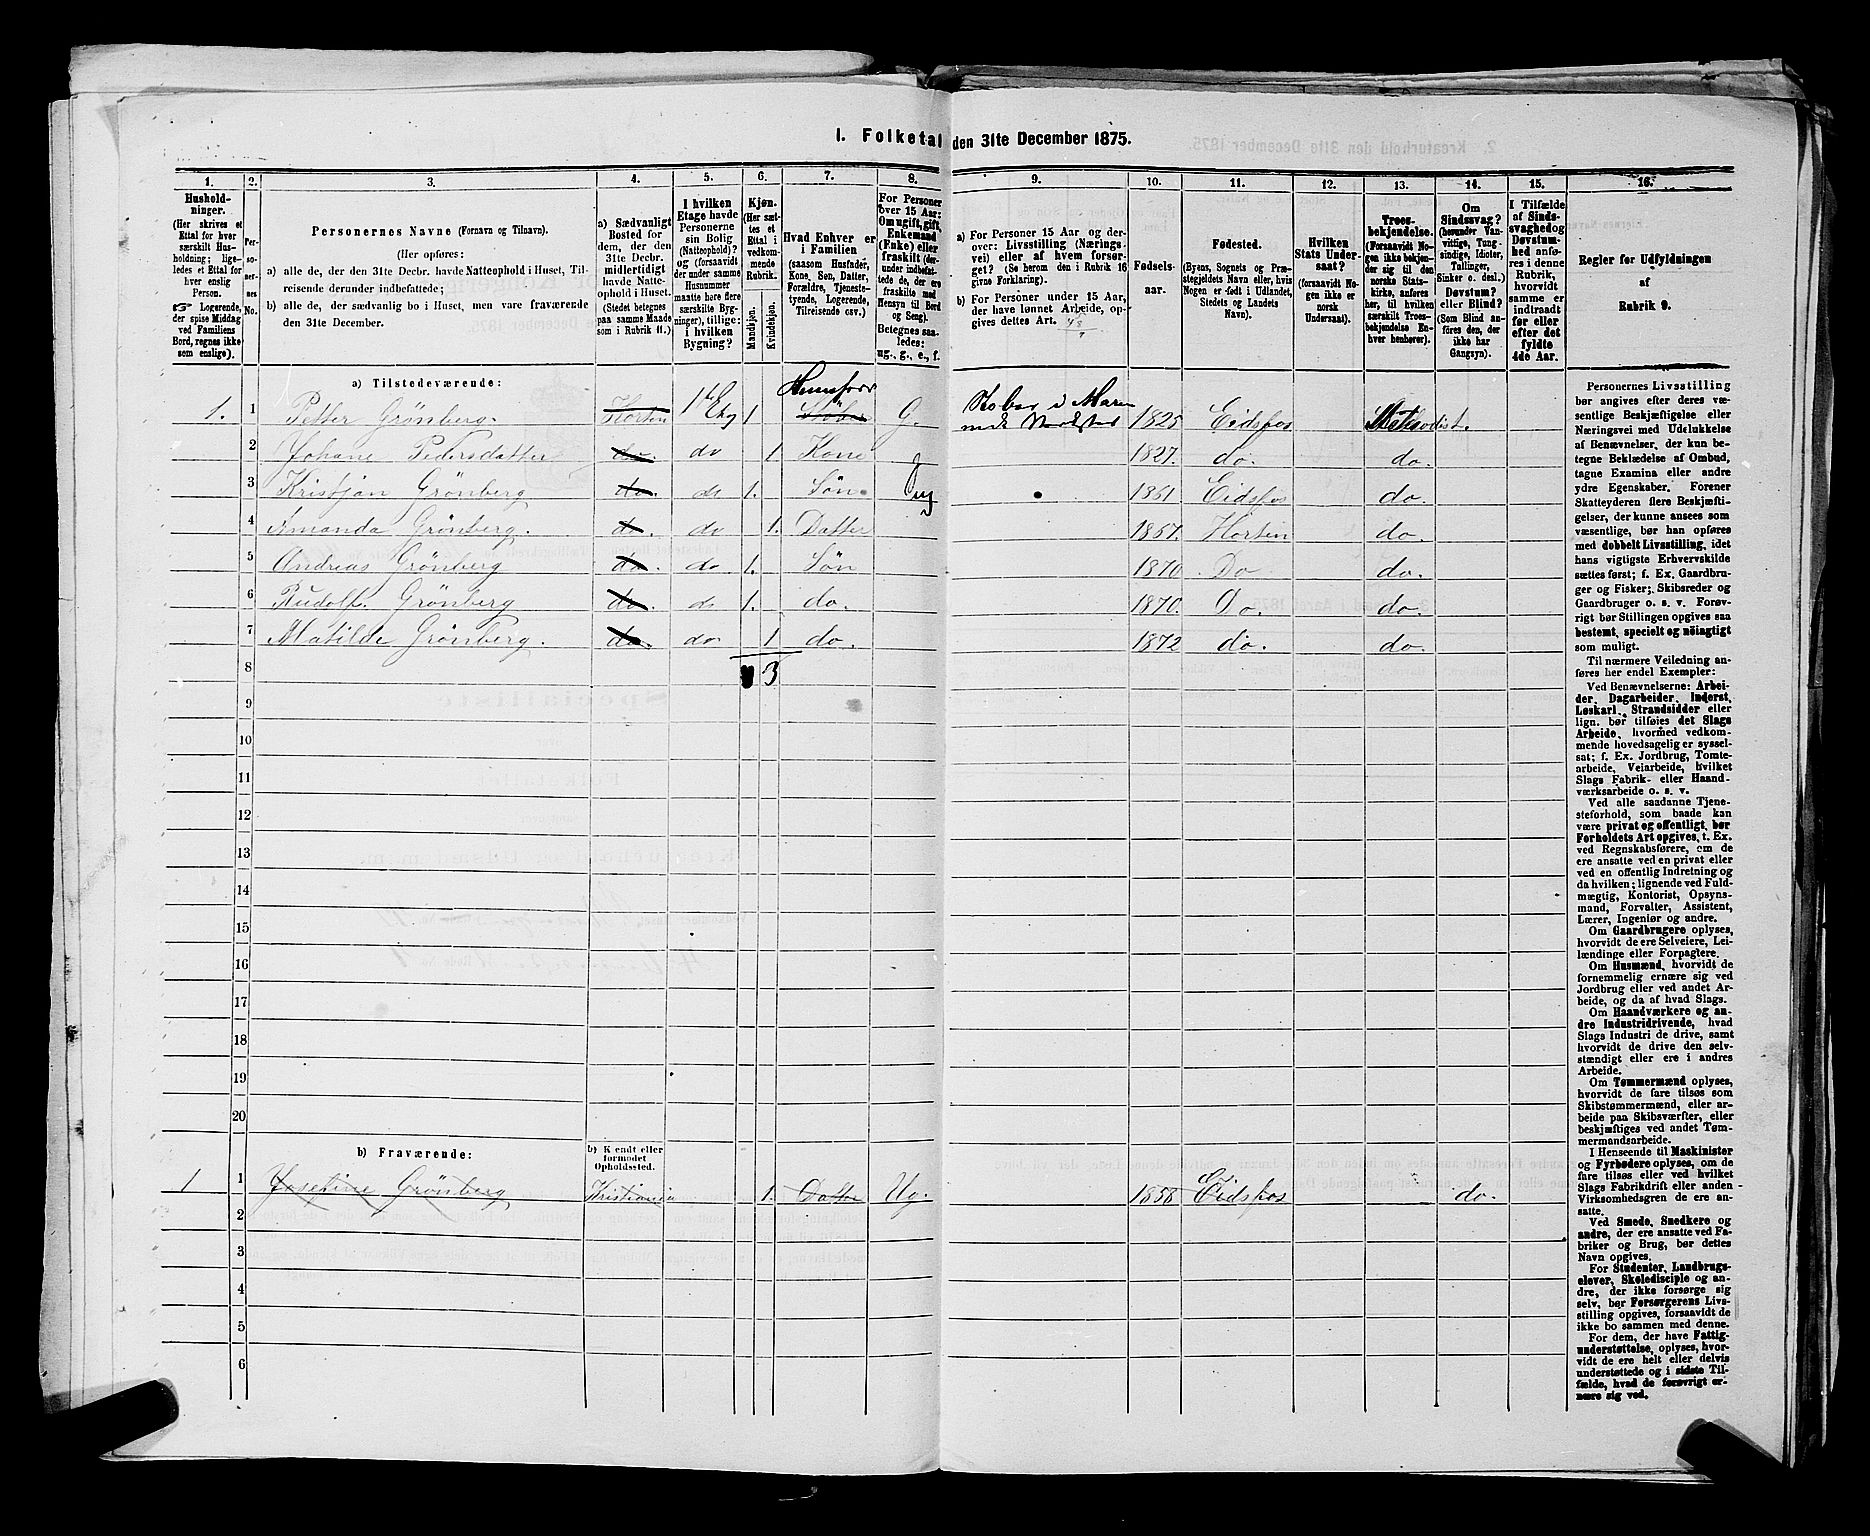 I. Folketal den 31te December 1875.
1. 2. 3. 4. 5. 6. 7. 8. 9. 10. 11. 12. 13. 14. 15. 16.
Hushold-
ninger.
(Her skrives et
Ettal for hver
særskilt Hus-
holdning; lige-
ledes et Ettal for
hver enslig
Person.
☞ Logerende,
der spise Middag
ved Familiens
Bord, regnes ikke
som enslige).
Per-
so-
ner-
nes
No.
Personernes Navne (Fornavn og Tilnavn).
(Her opføres:
a) alle de, der den 31te Decbr. havde Natteophold i Huset, Til-
reisende derunder indbefattede;
b) alle de, der sædvanlig bo i Huset, men vare fraværende
den 31te December.
a) Sædvanligt
Bosted for
dem, der den
31te Decbr.
midlertidigt
havde Natte-
ophold i Huset.
(Stedet betegnes
paa samme Maade
som i Rubrik 11.)
I hvilken
Etage havde
Personerne
sin Bolig
(Natteophold)?
og (forsaavidt
der under samme
Husnummer
maatte høre flere
særskilte Byg-
ninger), tillige:
i hvilken
Bygning?
Kjøn.
(Her sæt-
tes et
Ettal i
vedkom-
mende
Rubrik.
Mandkjøn.
Kvindekjøn.
Hvad Enhver er
i Familien
(saasom Husfader,
Kone, Søn, Datter,
Forældre, Tjeneste-
tyende, Logerende,
Tilreisende osv.)
For Personer
over 15 Aar:
Om ugift, gift,
Enkemand
(Enke) eller
fraskilt (der-
under indbefat-
tede de, der ere
fraskilte med
Hensyn til Bord
og Seng).
Betegnes saa-
ledes:
ug., g., e., f.
a) For Personer 15 Aar og der-
over: Livsstilling (Nærings-
vei) eller af hvem forsør-
get? (Se herom den i Rubrik 16
givne Forklaring).
b) For Personer under 15 Aar,
der have lønnet Arbeide, op-
gives dettes Art.
Fødsels-
aar.
Fødested.
(Byens, Sognets og Præ-
stegjeldets Navn eller, hvis
Nogen er født i Udlandet,
Stedets og Landets
Navn).
Hvilken
Stats Under-
saat?
(forsaavidt No-
gen ikke er
norsk
Undersaat).
Troes-
bekjendelse.
(Forsaavidt No-
gen ikke bekjen-
der sig til den
norske Stats-
kirke, anføres
her, til hvilken
særskilt Troes-
bekjendelse En-
hver henhører).
Om
Sindssvag?
(herunder Van-
vittige, Tung-
sindige, Idioter,
Tullinger,
Sinker o. desl.)
Døvstum?
eller Blind?
(Som Blind an-
føres den, der
ikke har
Gangsyn).
I Tilfælde
af Sinds-
svaghed og
Døvstum-
hed anfø-
res i denne
Rubrik,
hvorvidt
samme er
indtraadt
før eller
efter det
fyldte
4de Aar.
Regler for Udfyldningen
af
Rubrik 9.
a) Tilstedeværende:
1. 1 Petter Grönberg. Horten 1te Etg 1 G. 1825 Eidsfos Methodist.
2 Johane Pedersdatter do. do 1 Kone 1827. do. do.
3 Kristjan Grönberg do. do 1. Søn 1861 Eidsfos do.
4 Amanda Grönberg. do. do 1. Datter 1867. Horten do.
5 Andreas Grönberg do. do 1. Søn 1870 Do do.
6 Rudolf. Grönberg do. do 1. do. 1870. Do. do.
7 Matilde Grönberg. do. do 1 do. 1872 do. do.
8 3
9
10
11
12
13
14
15
16
17
18
19
20
b) Fraværende:
b) Kjendt eller
formodet
Opholdssted.
1 1 Josefine Grönberg Kristiania 1. Datter Ug. Eidsfos do.
2
3
4
5
6
Personernes Livsstilling
bør angives efter deres væ-
sentlige Beskjæftigelse eller
Næringsvei med Udelukkelse
af Benævnelser, der kun be-
tegne Beklædelse af Ombud,
tagne Examina eller andre
ydre Egenskaber. Forener
Skatteyderen flere Beskjæfti-
gelser, der kunne ansees som
væsentlige, bør han opføres
med dobbelt Livsstilling, idet
hans vigtigste Erhvervskilde
sættes først; f. Ex. Gaardbru-
ger og Fisker; Skibsreder og
Gaardbruger o. s. v. Forøv-
rigt bør Stillingen opgives saa
bestemt, specielt og nøiagtigt
som muligt.
Til nærmere Veiledning an-
føres her endel Exempler:
Ved Benævnelserne: Arbei-
der, Dagarbeider, Inderst,
Løskarl, Strandsidder eller
lign. bør tilføies det Slags
Arbeide, hvormed vedkom-
mende hovedsagelig er syssel-
sat; f. Ex. Jordbrug, Tomte-
arbeide, Veiarbeide, hvilket
Slags Fabrik- eller Haand-
værksarbeide o. s. v.
Ved alle saadanne Tjene-
steforhold, som baade kan
være privat og offentligt, bør
Forholdets Art opgives, f. Ex.
ved Regnskabsførere, om de
ere ansatte ved en privat eller
ved en offentlig Indretning og
da hvilken; lignende ved Fuld-
mægtig, Kontorist, Opsyns-
mand, Forvalter, Assistent,
Lærer, Ingeniør og andre.
Om Gaardbrugere oplyses,
hvorvidt de ere Selveiere, Lei-
lændinge eller Forpagtere.
Om Husmænd, hvorvidt de
fornemmelig ernære sig ved
Jordbrug eller ved andet Ar-
beide, og da af hvad Slags.
Om Haandværkere og an-
dre Industridrivende, hvad
Slags Industri de drive, samt
hvorvidt de drive den selv-
stændigt eller ere i andres
Arbeide.
Om Tømmermænd oplyses,
hvorvidt de fare tilsøs som
Skibstømmermænd, eller ar-
beide paa Skibsværfter, eller
beskjæftiges ved andet Tøm-
mermandsarbeide.
I Henseende til Maskinister
og Fyrbødere oplyses, om de
fare tilsøs eller ved hvilket
Slags Fabrikdrift eller anden
Virksomhedsgren de ere an-
satte.
Ved Smede, Snedkere og
andre, der ere ansatte ved Fa-
briker og Brug, bør dettes
Navn opgives.
For Studenter, Landbrugs-
elever, Skoledisciple og an-
dre, der ikke forsørge sig
selv, bør Forsørgerens Livs-
stilling opgives, forsaavidt de
ikke bo sammen med denne.
For dem, der have Fattig-
understøttelse, oplyses, hvor-
vidt de ere helt eller delvis
understøttede og i sidste Til-
fælde, hvad de forøvrigt er-
nære sig ved.